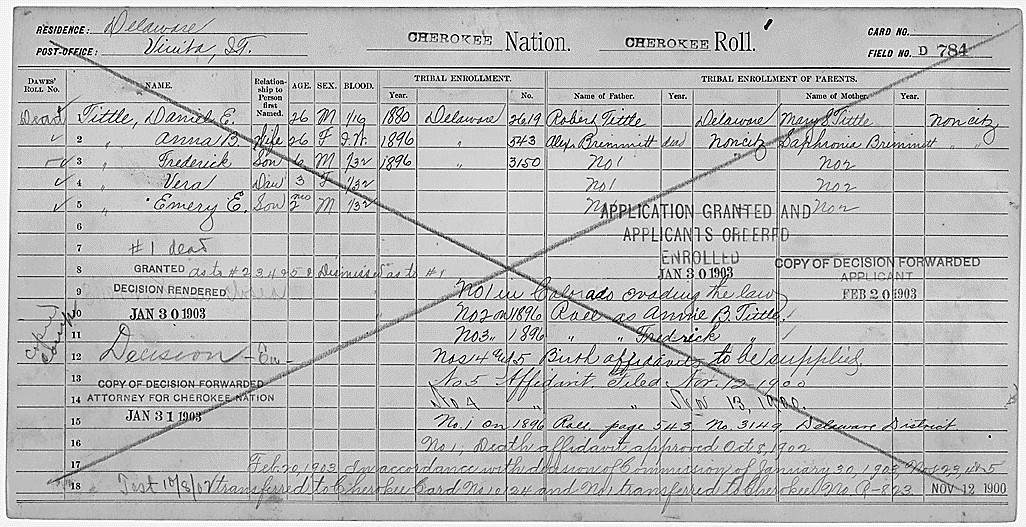 RESIDENCE: Delaware
POST-OFFICE: Vinita, I.T.
CHEROKEE Nation. CHEROKEE Roll.
CARD NO.
FIELD NO. D 784
DAWES' ROLL NO. NAME. Relationship to Person first Named. AGE. SEX. BLOOD. TRIBAL ENROLLMENT. TRIBAL ENROLLMENT OF PARENTS.
Year. No. Name of Father. Year. Name of Mother. Year.
Dead Tittle, Daniel E. 26 M 1/16 1880 Delaware 2619 Robert Tittle Delaware Mary S. Tittle Non citz
2 " Anna B. Wife 26 F I.W. 1896 " 543 Alex Bremmitt dead Noncitz Saphronia Bremmitt " "
3 " Frederick Son 6 M 1/32 1896 " 3150 No1 No2
4 " Vera Dau 3 F 1/32 No1 No2
5 " Emery E. Son 2 mo M 1/32 No1 No2
APPLICATION GRANTED AND
APPLICANTS ORDERED
ENROLLED
JAN 30 1903
6
7 #1 dead
8 GRANTED as to #2 3 4 & 5 & Dismissed as to #1
COPY OF DECISION FORWARDED
APPLICANT
FEB 20 1903
9 DECISION RENDERED
JAN 30 1903
No1 in Colorado evading the law
10 No2 on 1896 Roll as Annie B. Tittle
11 No3 " 1896 " " Fredrick "
12 Decision - En - Nos 4 and 5 Birth affidavits to be supplied
13 No. 5 Affidavit Filed Nov. 12-1900
COPY OF DECISION FORWARDED
ATTORNEY FOR CHEROKEE NATION
JAN 31 1903
14 No 4 " " Nov 13, 1900
15 No. 1 on 1896 Roll page 543 No. 3149, Delaware District
16 No 1; Death affidavit approved Oct 8, 1902
17 Feb. 20, 1903, In accordance with decision of Commission of January 30, 1903 Nos 2 3 4 & 5
18 Test 10/8/02 transferred to Cherokee Card No 10124 and No 1 transferred to Cherokee No R-823 NOV 12 1900